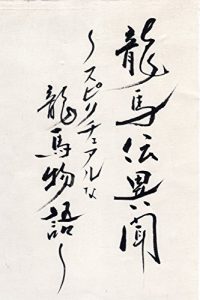 龍馬伝異聞
〜スピリチュアルな
龍馬物語〜